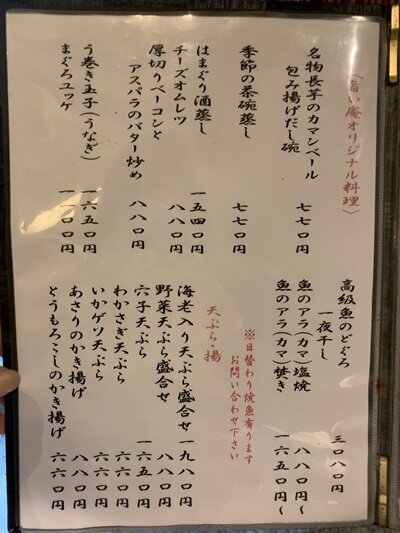 〈旨い庵オリジナル料理〉
名物長芋のカマンベール
包み揚げだし碗
七七〇円
季節の茶碗蒸し
七七〇円
はまぐり酒蒸し
一五四〇円
チーズオムレツ
八八〇円
厚切りベーコンと
アスパラのバター炒め
八八〇円
う巻き玉子(うなぎ)
一六五〇円
まぐろユッケ
一一〇〇円
高級魚のどぐろ
一夜干し
三〇八〇円
魚のアラ(カマ)塩焼
八八〇円〜
魚のアラ(カマ)焚き
一六五〇円〜
※日替わり焼魚有ります
お問い合わせ下さい
天ぷら・揚
海老入り天ぷら盛合せ
一九八〇円
野菜天ぷら盛合せ
八八〇円
穴子天ぷら
一六五〇円
わかさぎ天ぷら
六六〇円
いかゲソ天ぷら
六六〇円
あさりのかき揚げ
八八〇円
とうもろこしのかき揚げ
六六〇円